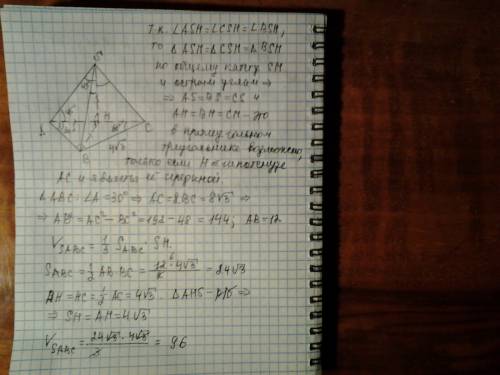 Т.к. ∠ASH=∠CSH=∠BSH,
то △ASH=△CSH=△BSH
по общему катету SH
и острым углам ⇒
⇒ AS=BS=CS и
AH=BH=CH – это
в прямоугольном
треугольнике возможно,
только если H ∈ гипотенузе
AC и является её серединой.
S
A
H
C
B
4√3
△ABC: ∠A=30° ⇒ AC=2BC=8√3 ⇒
⇒ AB²=AC²−BC²=192−48=144; AB=12
V_SABC = 1/3 S_ABC · SH.
S_ABC = 1/2 AB·BC = 12·4√3/2 = 24√3
AH=HC=1/2 AC=4√3. △AHS – р/б ⇒
⇒ SH=AH=4√3
V_SABC = 24√3·4√3/3 = 96